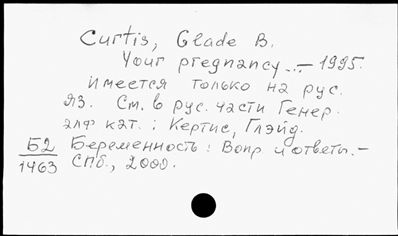 Curtis, Glade B.
Your pregnancy...– 1995.
имеется только на рус.
яз. См. в рус. части Генер.
алф кат. : Кертис, Глэйд.
Б2 Беременность : Вопр и ответы. –
1463 СПб., 2000.